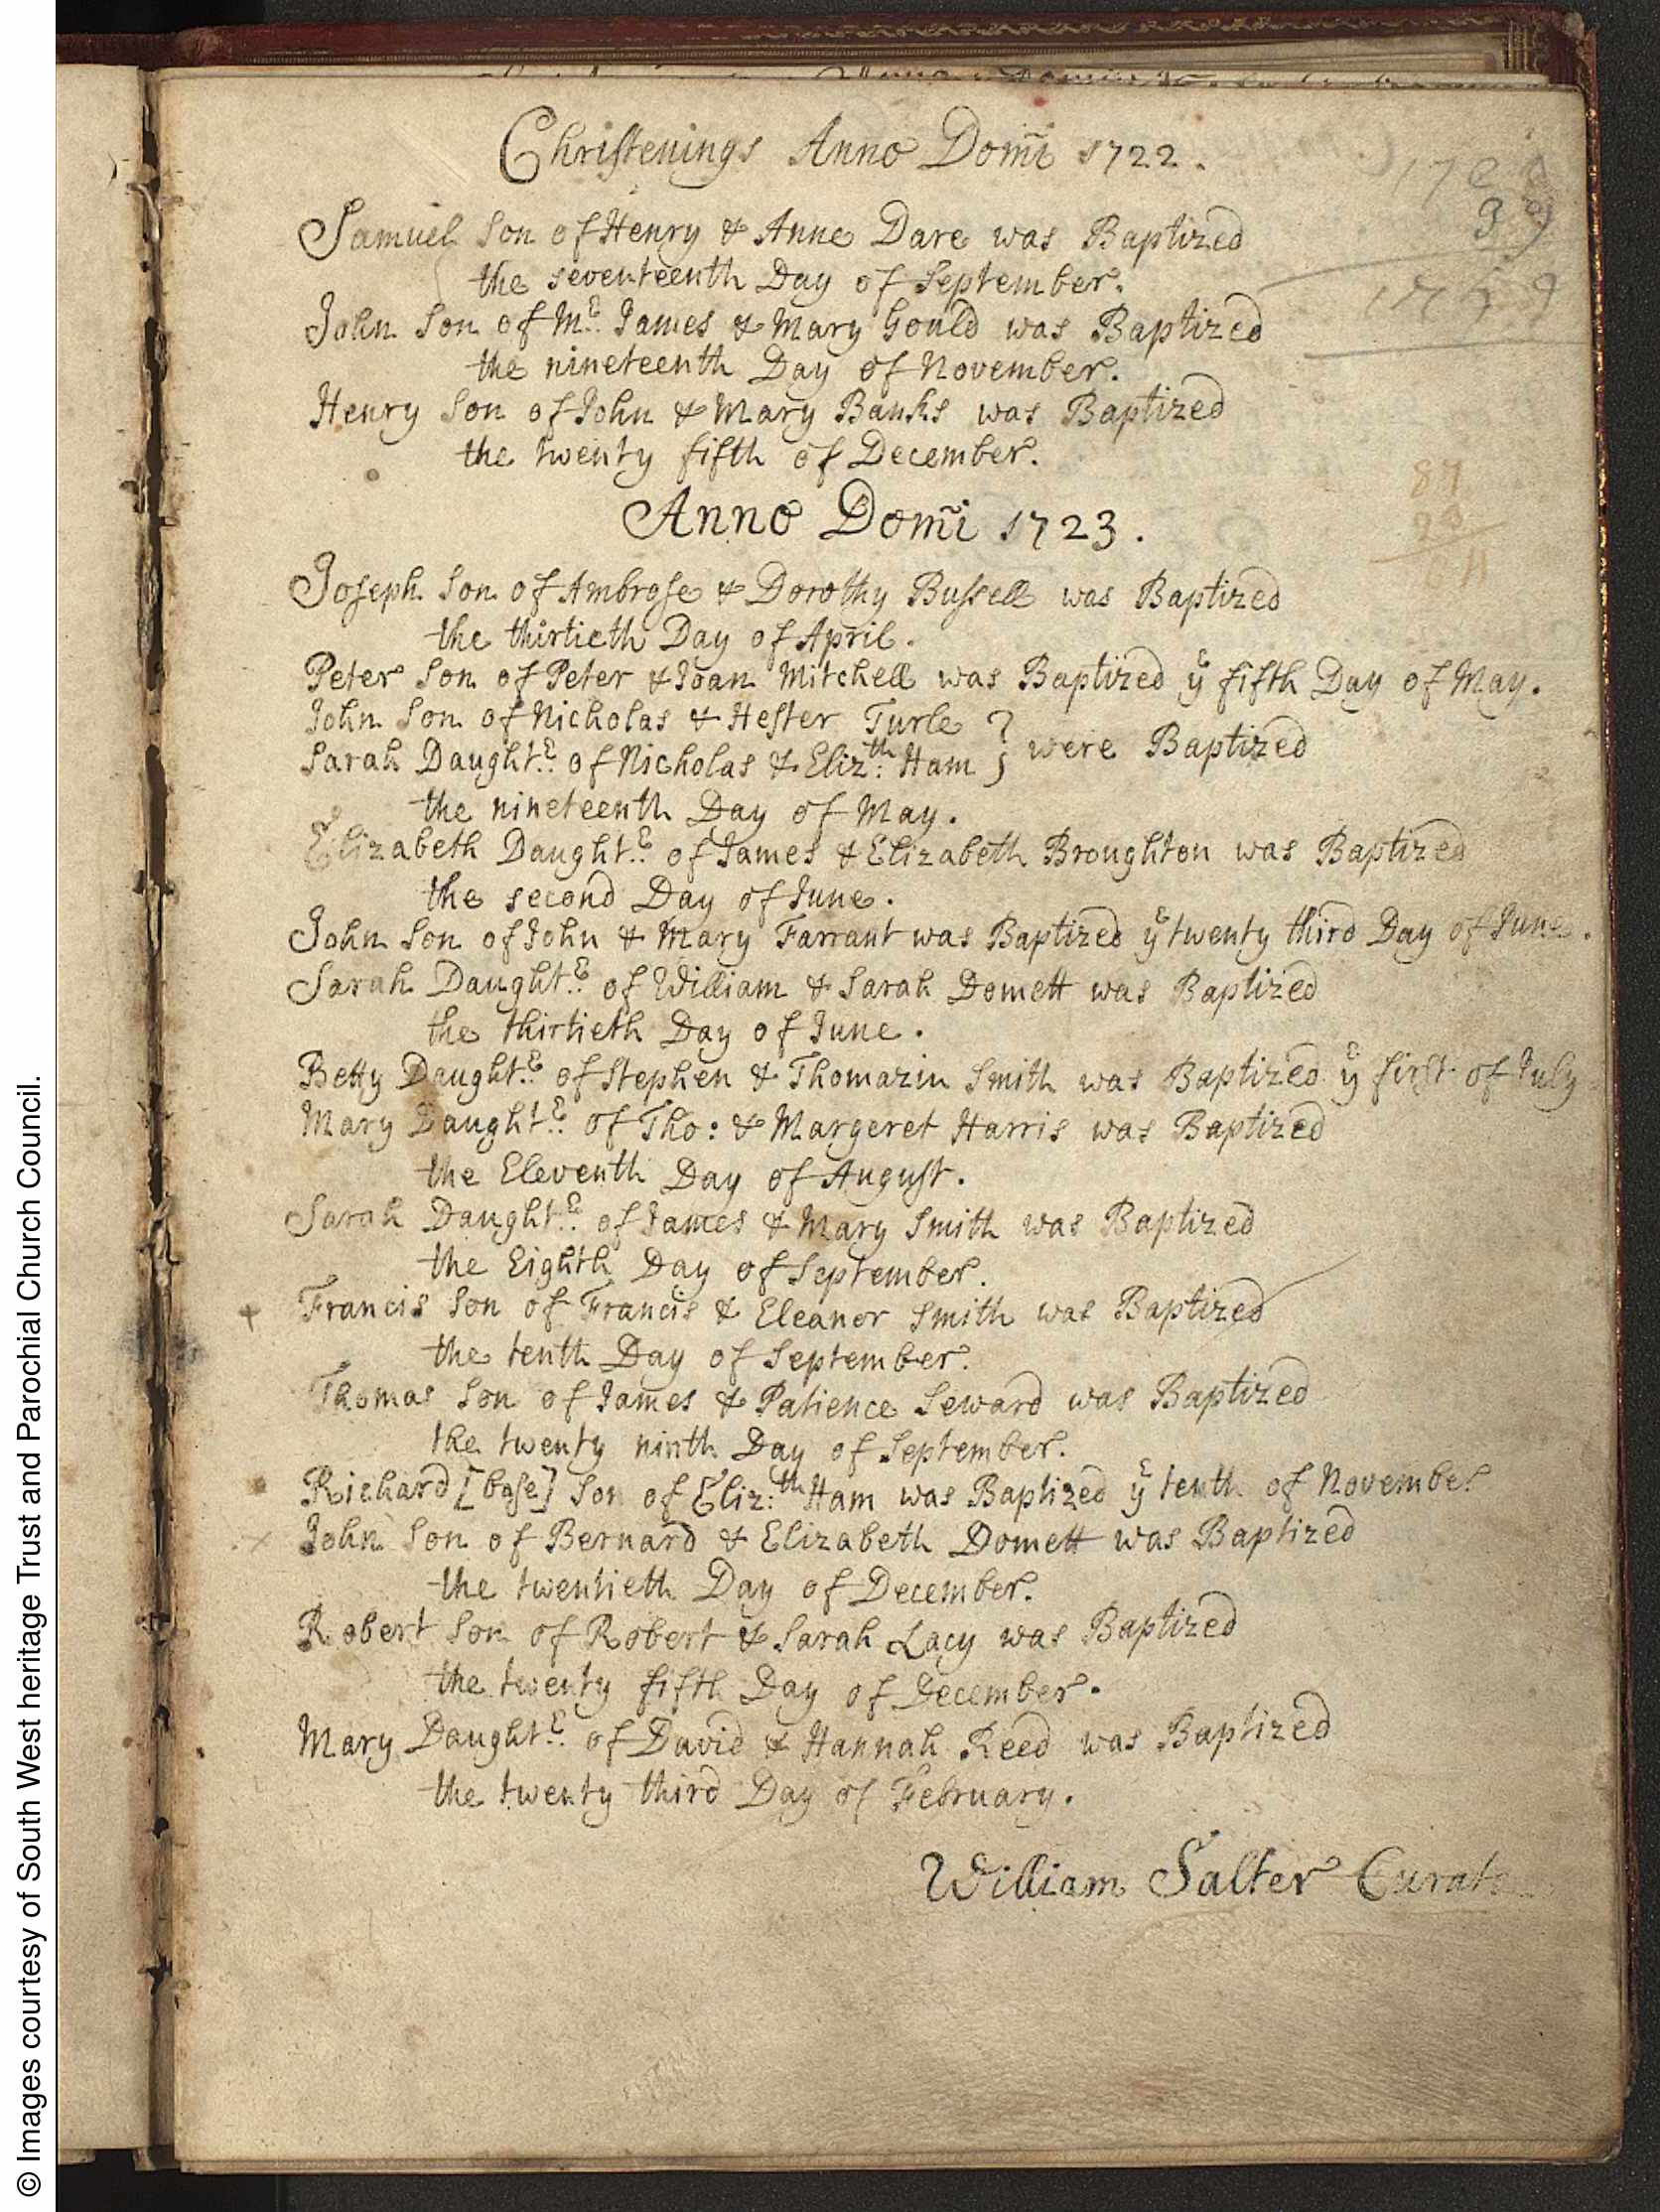 Christenings Anno Dom̃i 1722.
Samuel Son of Henry & Anne Dare was Baptized
the seventeenth Day of September.
John Son of Mr. James & Mary Gould was Baptized
the nineteenth Day of November.
Henry Son of John & Mary Banks was Baptized
the twenty fifth of December.
Anno Dom̃i 1723.
Joseph Son of Ambrose & Dorothy Bussell was Baptized
the thirtieth Day of April.
Peter Son of Peter & Joan Mitchell was Baptized ye fifth Day of May.
John Son of Nicholas & Hester Turle
Sarah Daughtr. of Nicholas & Eliz:th Ham } were Baptized
the nineteenth Day of May.
Elizabeth Daughtr. of James & Elizabeth Broughton was Baptized
the second Day of June.
John Son of John & Mary Farrant was Baptized ye twenty third Day of June.
Sarah Daughtr. of William & Sarah Domett was Baptized
the thirtieth Day of June.
Betty Daughtr. of Stephen & Thomazin Smith was Baptized ye first of July
Mary Daughtr. of Tho: & Margeret Harris was Baptized
the Eleventh Day of August.
Sarah Daughtr. of James & Mary Smith was Baptized
the Eighth Day of September.
Francis Son of Francis & Eleanor Smith was Baptized
the tenth Day of September.
Thomas Son of James & Patience Seward was Baptized
the twenty ninth Day of September.
Richard [base] Son of Eliz:th Ham was Baptized ye tenth of November
John Son of Bernard & Elizabeth Domett was Baptized
the twentieth Day of December.
Robert Son of Robert & Sarah Lacy was Baptized
the twenty fifth Day of December.
Mary Daughtr. of David & Hannah Reed was Baptized
the twenty third Day of February.
William Salter Curate
© Images courtesy of South West heritage Trust and Parochial Church Council.